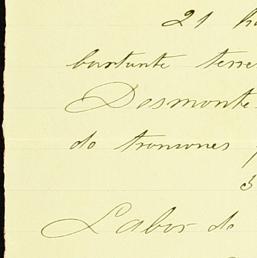 21
bastante terre
Desmonte
de troncones
3
Labor de